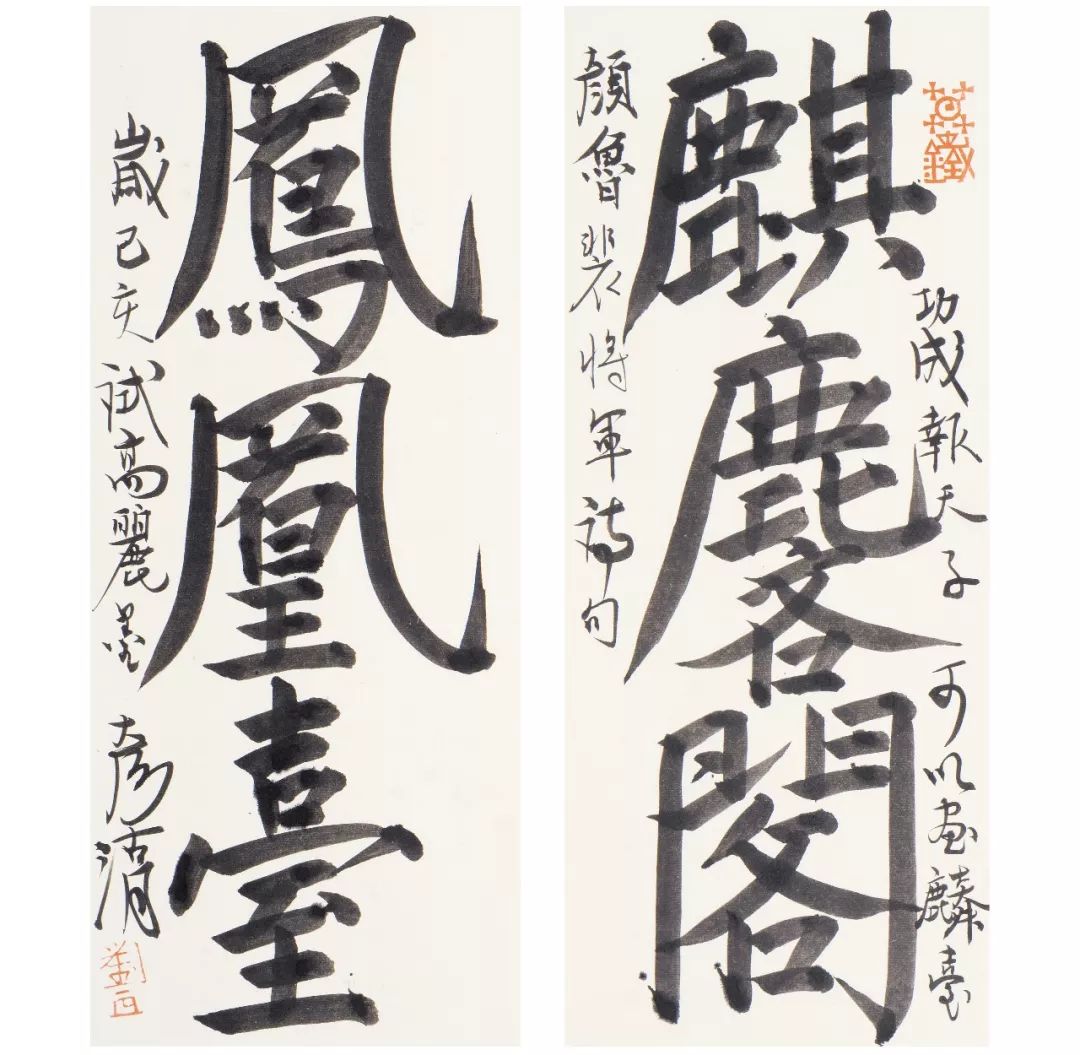 功成報天子可以畫麟臺
麒麐閣
顏魯裴將軍詩句
鳳凰臺
歲己亥試高麗墨彥湖